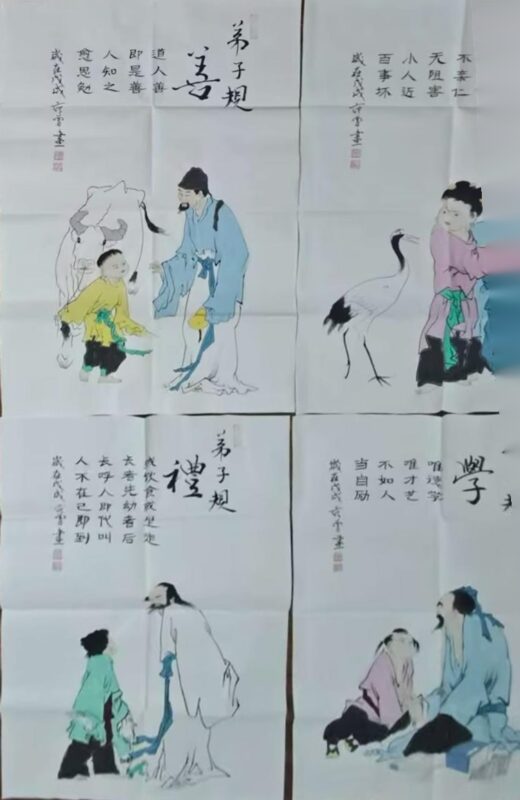 弟子規
善
道人善
即是善
人知之
愈思勉
歲在戊戌 雪畫
不亲仁
无限害
小人近
百事坏
歲在戊戌 雪畫
弟子規
禮
或饮食或坐走
长者先幼者后
长呼人即代叫
人不在己即到
歲在戊戌 雪畫
學
唯德学
唯才艺
不如人
当自励
歲在戊戌 雪畫